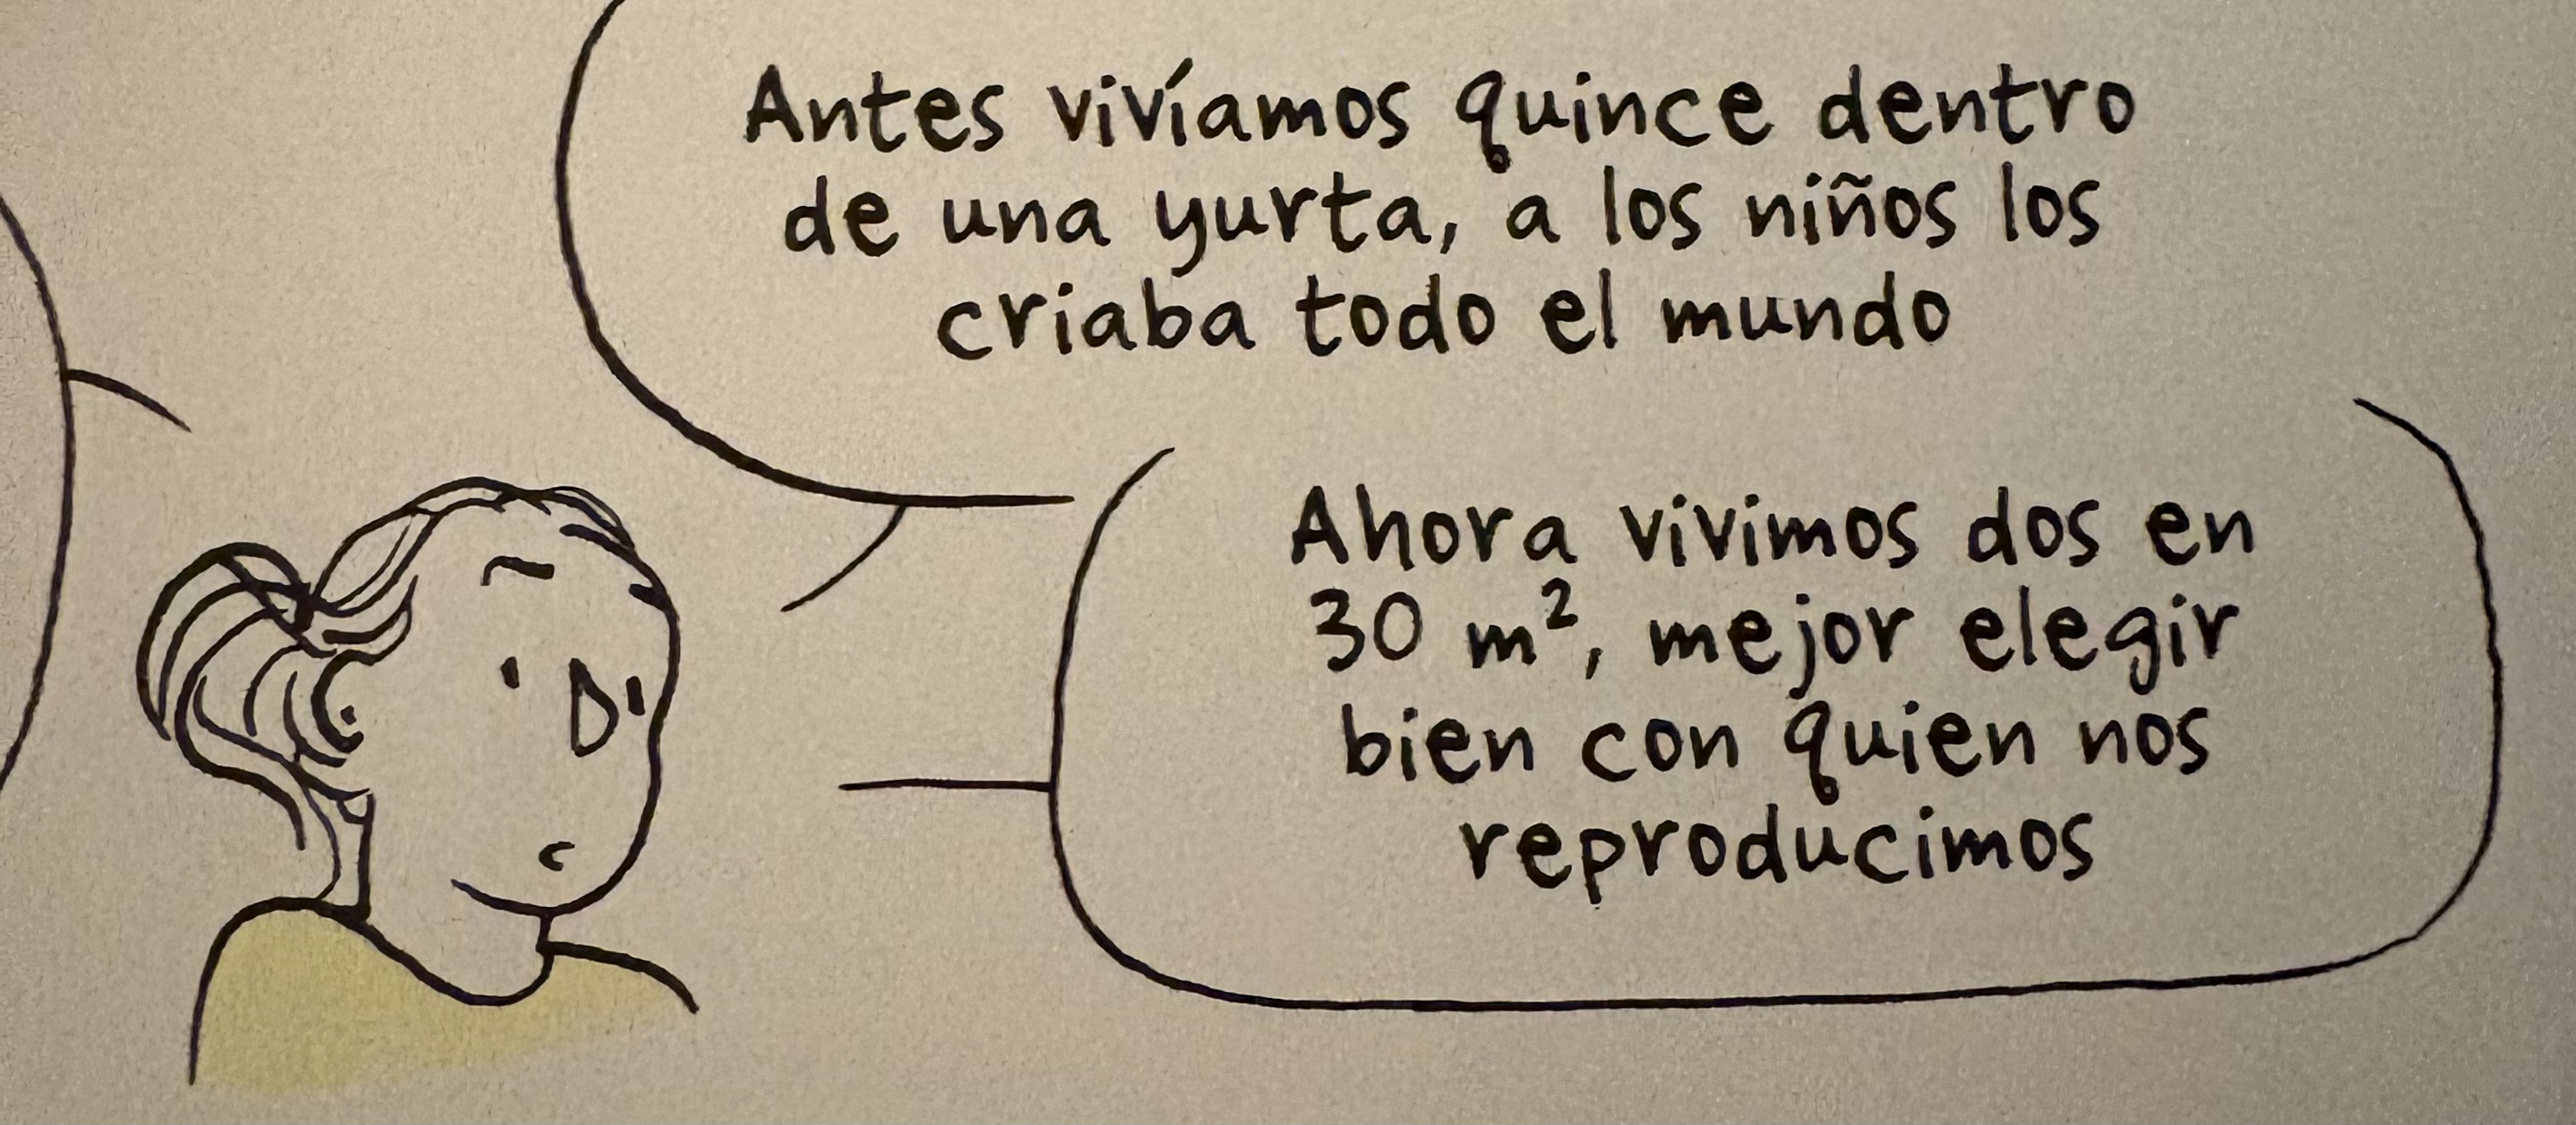 Antes vivíamos quince dentro
de una yurta, a los niños los
criaba todo el mundo
Ahora vivimos dos en
30 m², mejor elegir
bien con quien nos
reproducimos